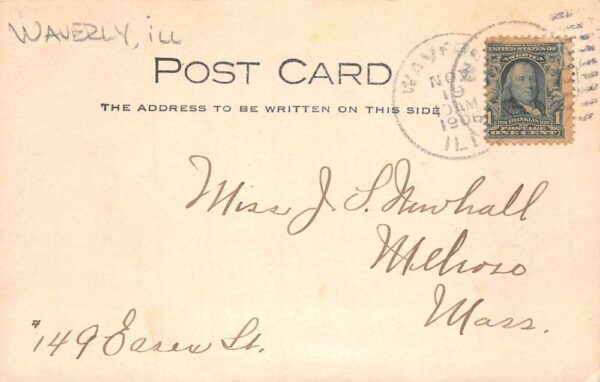 WAVERLY, ill
POST CARD
THE ADDRESS TO BE WRITTEN ON THIS SIDE
WAVE
NOV
10 AM
1906
ILL
UNITED STATES OF
AMERICA
1 FRANKLIN 1
POSTAGE
ONE CENT
Miss J. S. Newhall
Melrose
Mass.
#149 Essex St.